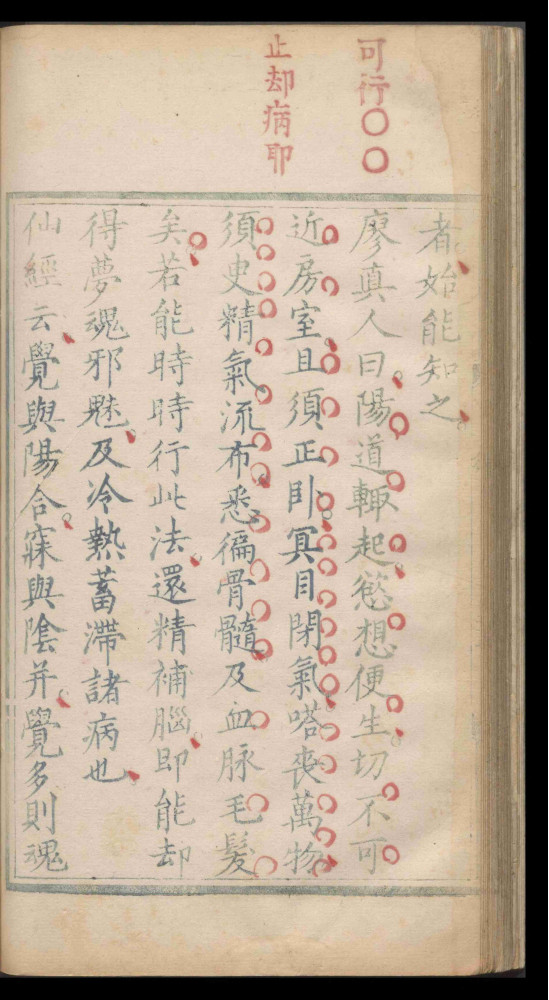 可行〇〇
止却病耶
者始能知之
廖真人曰陽道輙起慾想便生切不可
近房室且須正卧冥目閉氣嗒喪萬物
須史精氣流布悉徧骨髓及血脉毛髮
矣若能時時行此法還精補腦即能却
得夢魂邪魅及冷熱蓄滯諸病也
仙經云覺與陽合寐與陰并覺多則魂